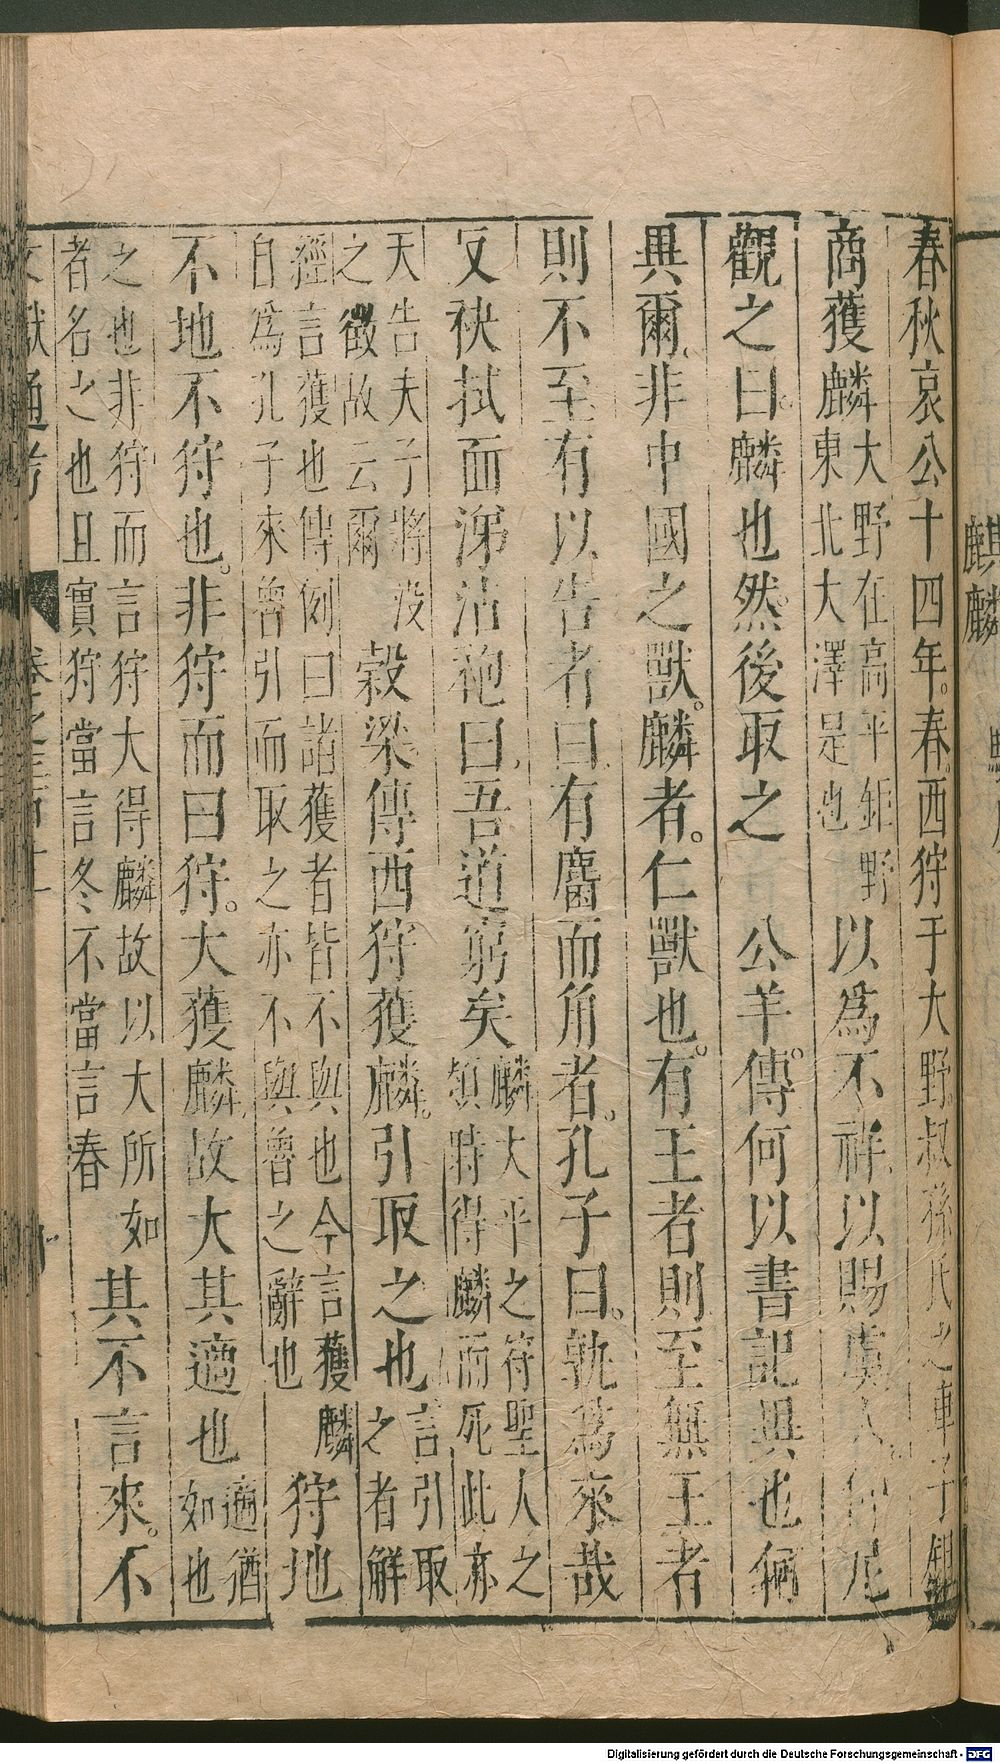 春秋哀公十四年。春。西狩于大野。叔孫氏之車子鉏
商獲麟大野在高平鉅野東北大澤是也以爲不祥。以賜虞人。仲尼
觀之曰。麟也。然後取之 公羊傳。何以書記異也何
異爾。非中國之獸。麟者。仁獸也。有王者則至無王者
則不至有以告者曰。有麕而角者。孔子曰。孰爲來哉
反袂拭面涕沾袍曰。吾道窮矣麟大平之符聖人之類時得麟而死此亦
天告夫子將没之徵故云爾穀梁傳西狩獲麟。引取之也言引取之者解
經言獲也傳例曰諸獲者皆不與也今言獲麟自爲孔子來魯引而取之亦不與魯之辭也狩地
不地不狩也。非狩而曰狩。大獲麟。故大其適也適猶如也
之也非狩而言狩大得麟故以大所如者名之也且實狩當言冬不當言春其不言來。不
文獻通考
麒麟
Digitalisierung gefördert durch die Deutsche Forschungsgemeinschaft - DFG